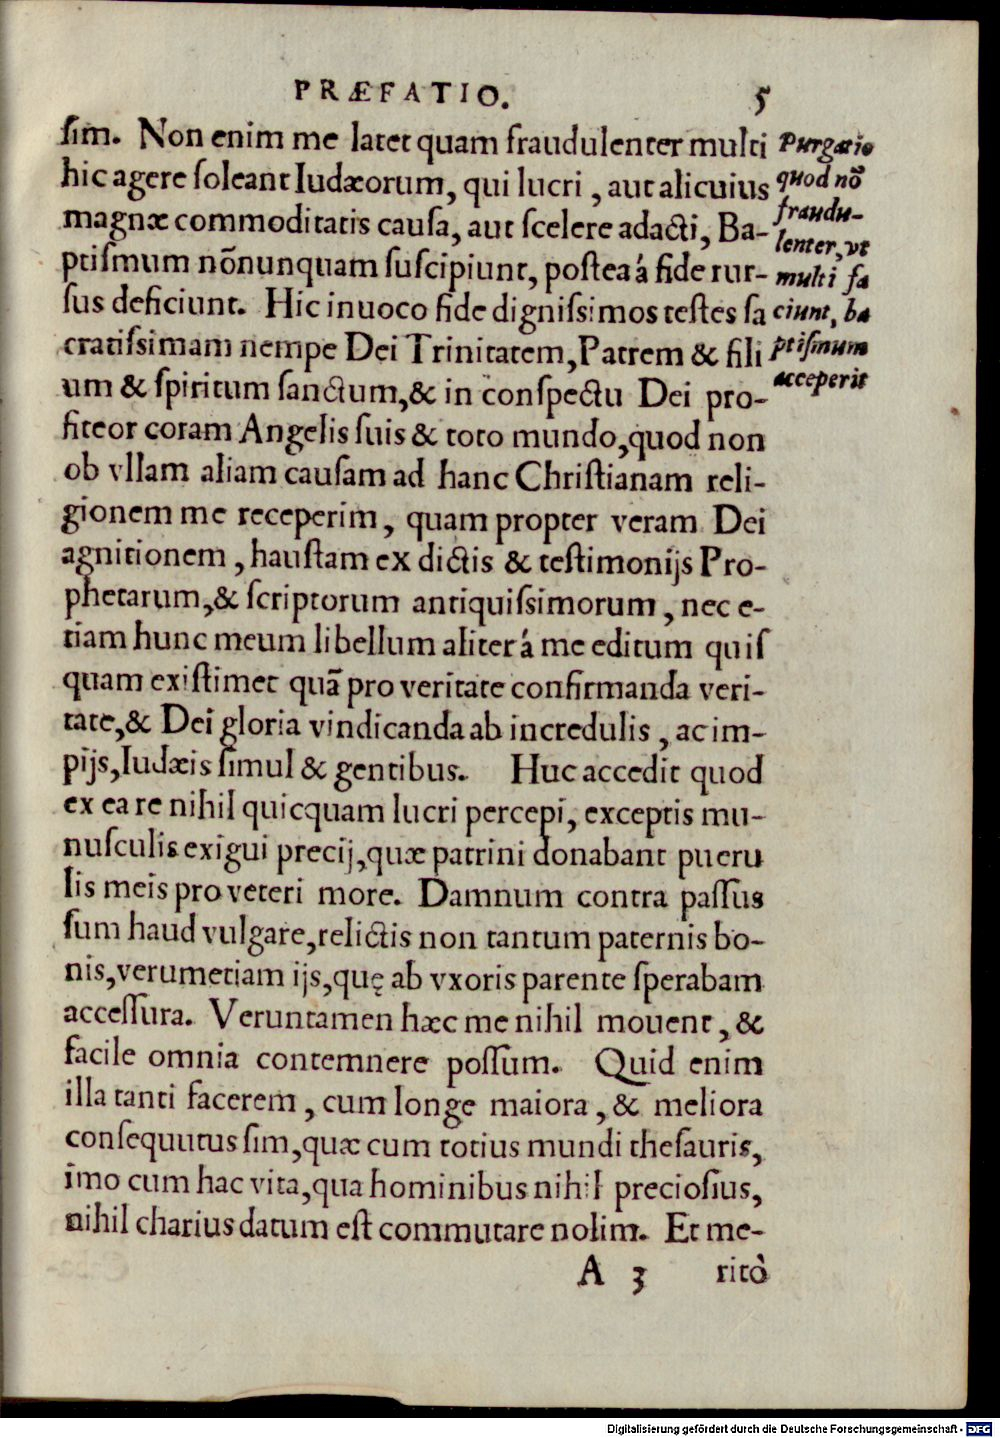 PRÆFATIO. 5
ſim. Non enim me latet quam fraudulenter multi
hic agere ſoleant Iudæorum, qui lucri, aut alicuius
magnæ commoditatis cauſa, aut ſcelere adacti, Ba-
ptiſmum nõnunquam ſuſcipiunt, poſtea á fide rur-
ſus deficiunt. Hic inuoco fide digniſsimos teſtes ſa
cratiſsimam nempe Dei Trinitatem, Patrem & fili
um & ſpiritum ſanctum, & in conſpectu Dei pro-
fiteor coram Angelis ſuis & toto mundo, quod non
ob vllam aliam cauſam ad hanc Chriſtianam reli-
gionem me receperim, quam propter veram Dei
agnitionem, hauſtam ex dictis & teſtimonijs Pro-
phetarum, & ſcriptorum antiquiſsimorum, nec e-
tiam hunc meum libellum aliter á me editum quiſ
quam exiſtimet quã pro veritate confirmanda veri-
tate, & Dei gloria vindicanda ab incredulis, ac im-
pijs, Iudæis ſimul & gentibus. Huc accedit quod
ex ea re nihil quicquam lucri percepi, exceptis mu-
nuſculis exigui precij, quæ patrini donabant pueru
lis meis pro veteri more. Damnum contra paſſus
ſum haud vulgare, relictis non tantum paternis bo-
nis, verumetiam ijs, quę ab vxoris parente ſperabam
acceſſura. Veruntamen hæc me nihil mouent, &
facile omnia contemnere poſſum. Quid enim
illa tanti facerem, cum longe maiora, & meliora
conſequutus ſim, quæ cum totius mundi theſauris,
imo cum hac vita, qua hominibus nihil precioſius,
nihil charius datum eſt commutare nolim. Et me-
A 3 ritò
Purgatio
quod nõ
fraudu-
lenter, vt
multi fa
ciunt, ba
ptiſmum
acceperit
Digitalisierung gefördert durch die Deutsche Forschungsgemeinschaft - DFG